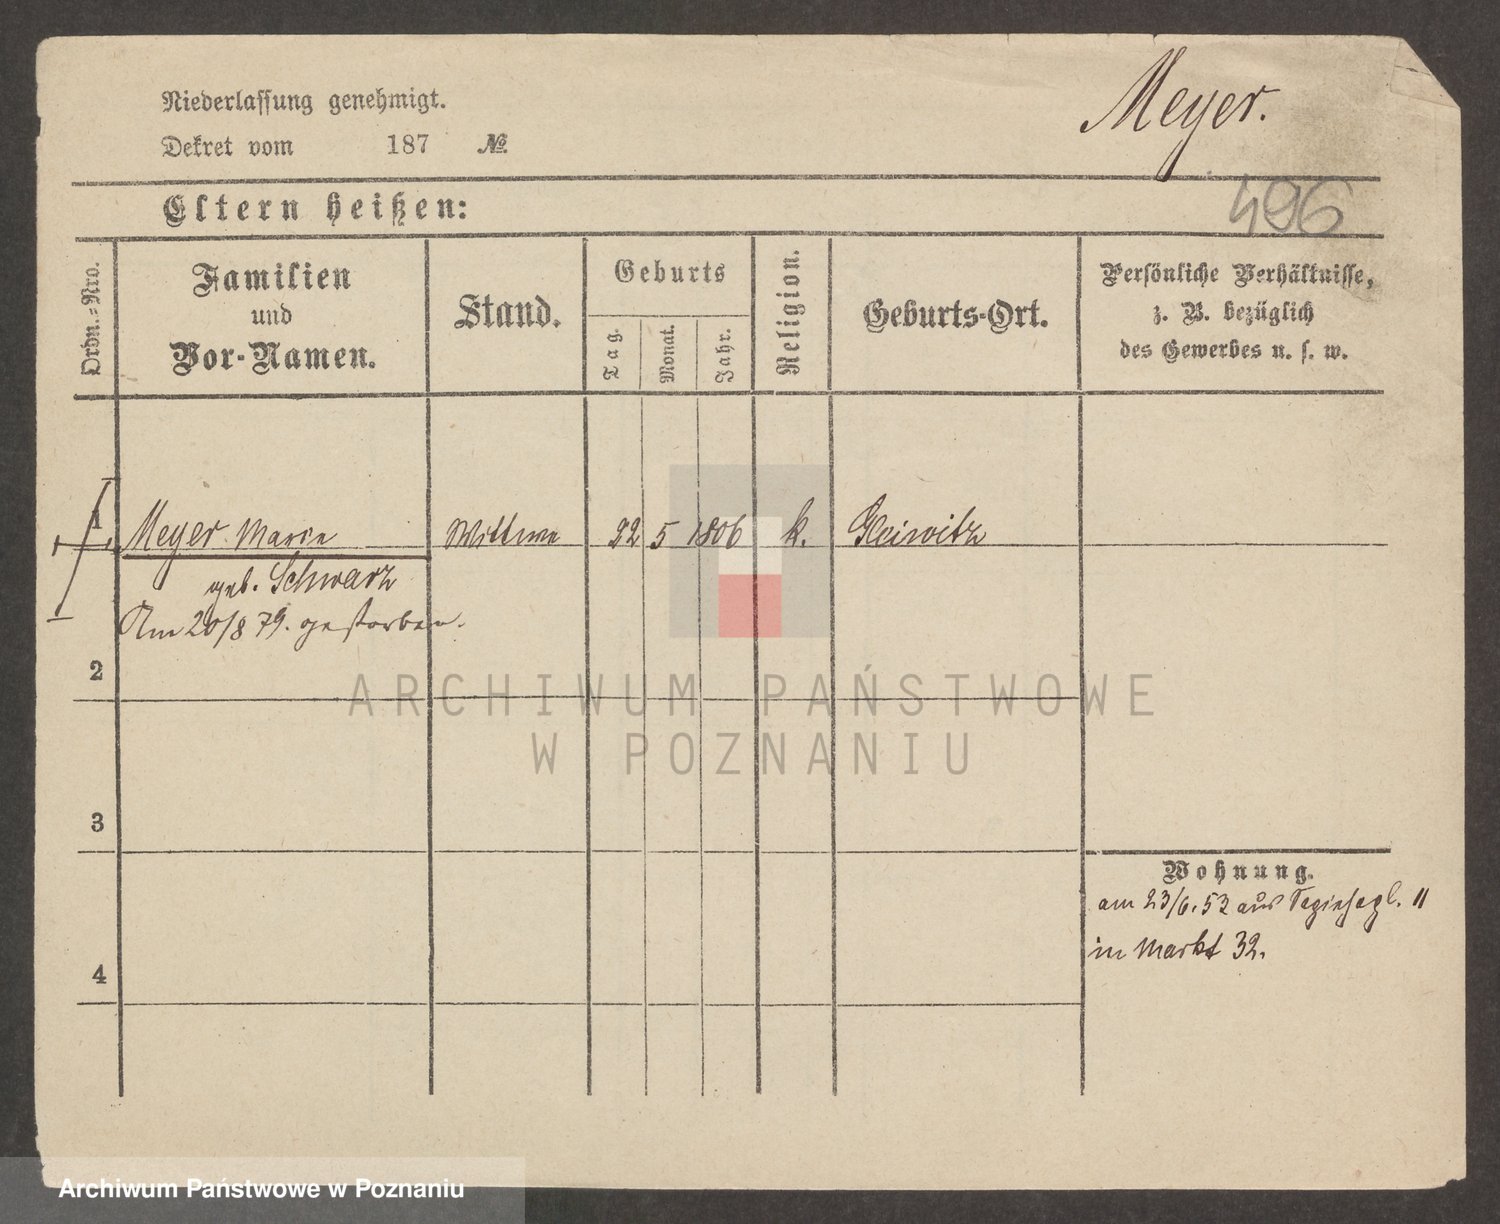 Meyer.
Niederlassung genehmigt.
Dekret vom 187 №
496
Eltern heißen:
Ordn.-Nro.
Familien
und
Vor-Namen.
Stand.
Geburts
Tag.
Monat.
Jahr.
Religion.
Geburts-Ort.
Persönliche Verhältnisse,
z. B. bezüglich
des Gewerbes u. s. w.
1 Meyer Marie Wittwe 22 5 1806 k. Gleiwitz
geb. Schwarz
Am 20/8 79. gestorben.
2
ARCHIWUM PAŃSTWOWE
W POZNANIU
3
Wohnung.
am 23/6. 52 aus 11
in Markt 32.
4
Archiwum Państwowe w Poznaniu